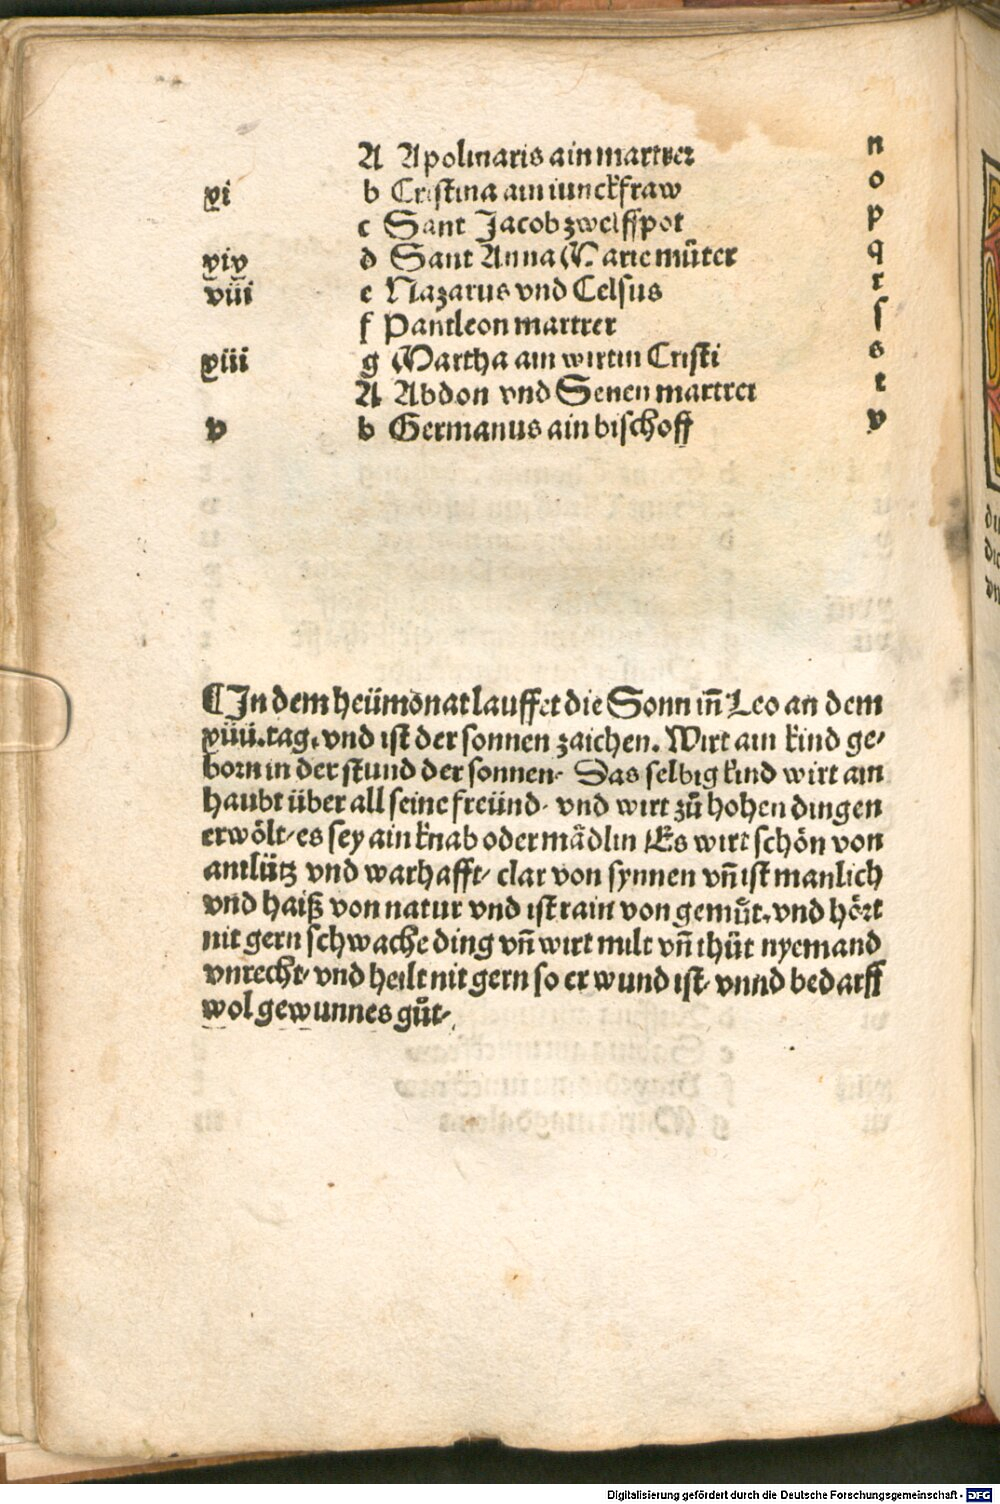 A Apolinaris ain martrer n
xi b Cristina ain iunckfraw o
c Sant Jacob zwelffpot p
xix d Sant Anna Marie můter q
viii e Nazarus vnd Celsus r
f Pantleon martrer ſ
xiii g Martha ain wirtin Cristi s
A Abdon vnd Senen martrer t
v b Germanus ain bischoff v
¶ In dem heümonat lauffet die Sonn iñ Leo an dem
xiiii. tag. vnd ist der sonnen zaichen. Wirt ain kind ge/
born in der stund der sonnen. Das selbig kind wirt ain
haubt über all seine freünd. vnd wirt zů hohen dingen
erwölt/ es sey ain knab oder mädlin Es wirt schön von
antlütz vnd warhafft/ clar von synnen vñ ist manlich
vnd haiß von natur vnd ist rain von gemůt. vnd hört
nit gern schwache ding vñ wirt milt vñ thůt nyemand
vnrecht/ vnd heilt nit gern so er wund ist/ vnnd bedarff
wol gewunnes gůt/
Digitalisierung gefördert durch die Deutsche Forschungsgemeinschaft - DFG